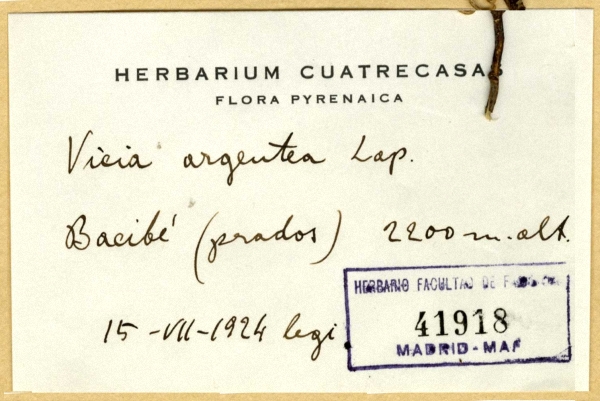 HERBARIUM CUATRECASAS
FLORA PYRENAICA
Vicia argentea Lap.
Bacibé (prados) 2200 m. alt.
15-VII-1924 legi
HERBARIO FACULTAD DE
41918
MADRID-MAF